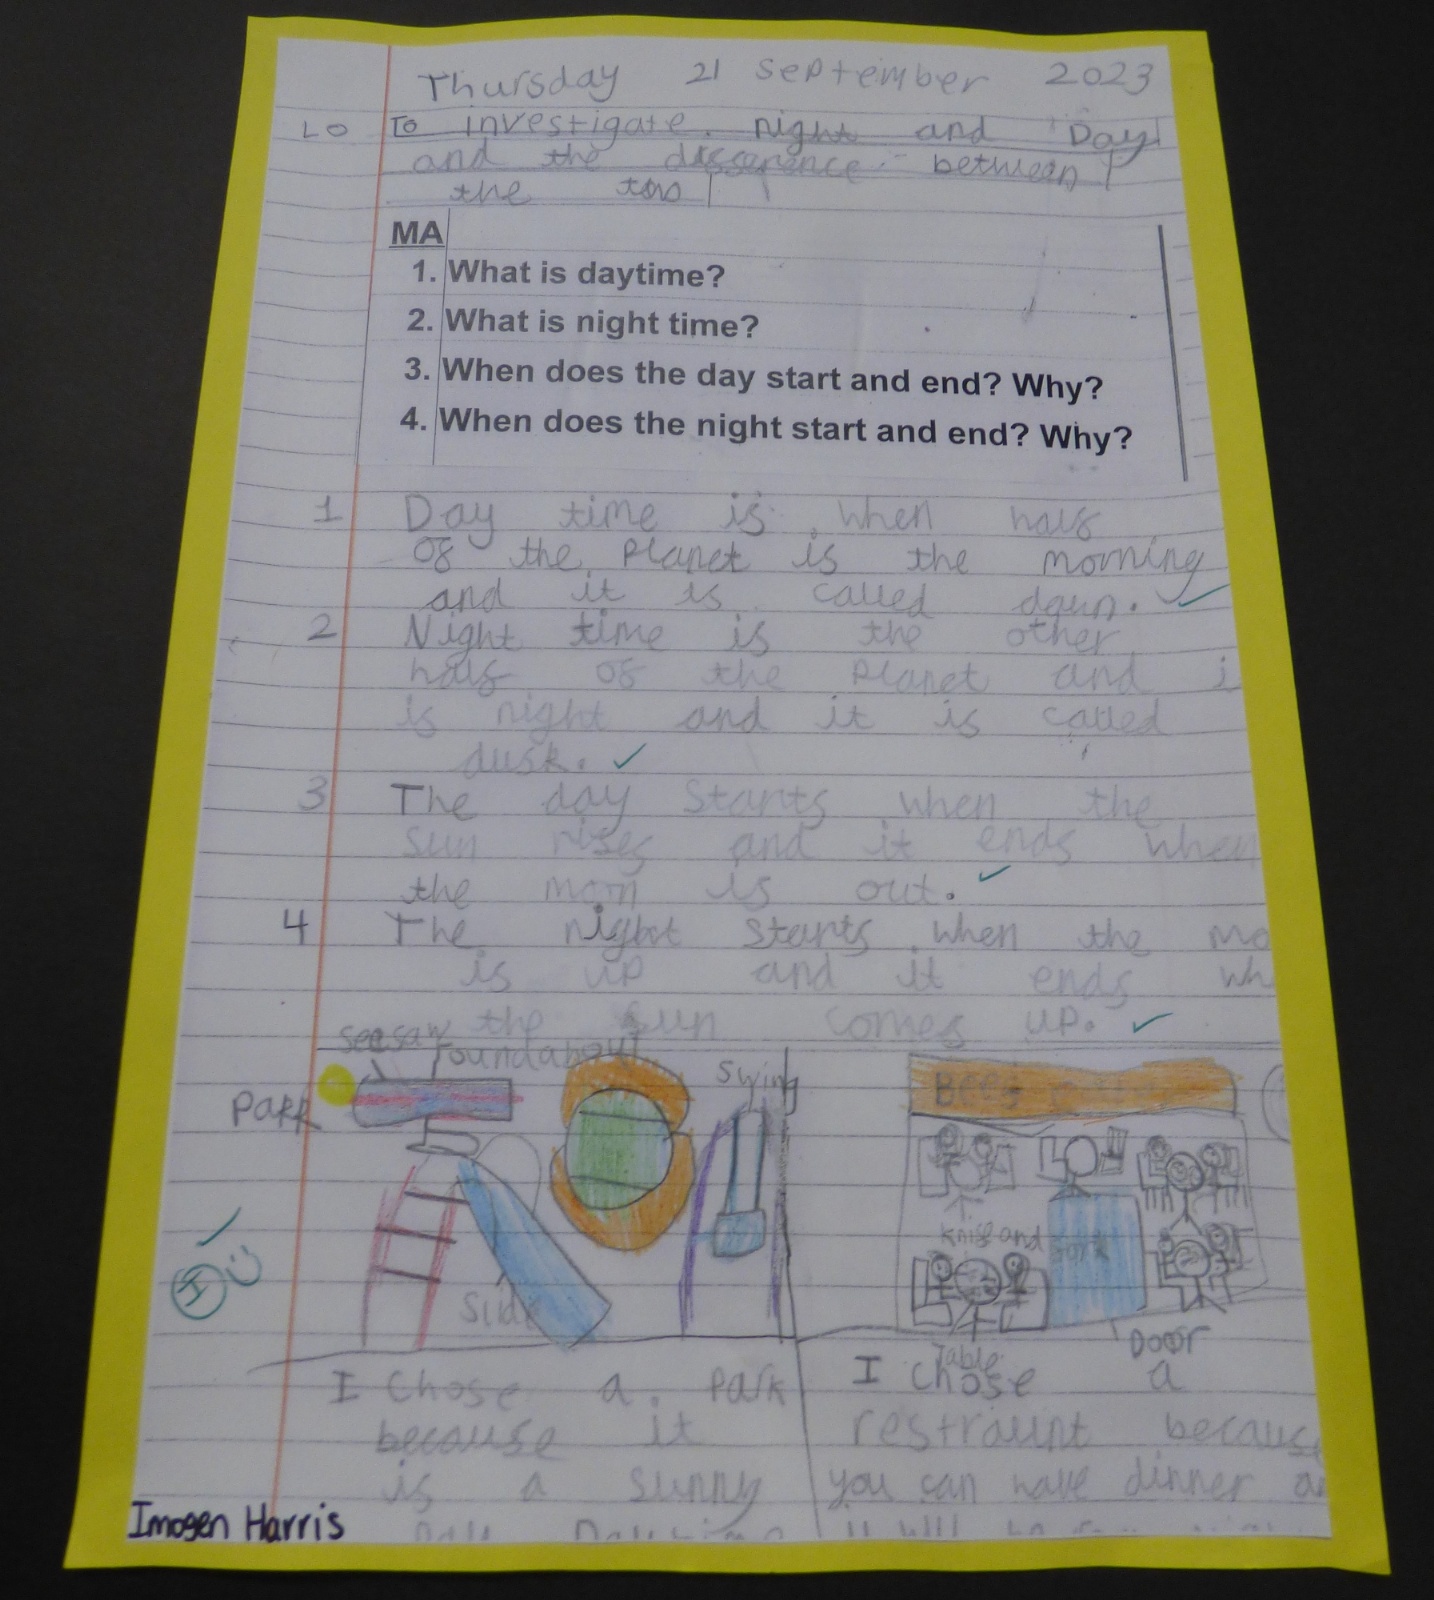 Thursday 21 September 2023
LO To investigate night and Day
and the differences between
the two
MA
1. What is daytime?
2. What is night time?
3. When does the day start and end? Why?
4. When does the night start and end? Why?
1 Day time is when half
of the planet is the morning
and it is called daun.
2 Night time is the other
half of the planet and i
is night and it is called
dusk.
3 The day starts when the
sun rises and it ends when
the moon is out.
4 The night starts when the mo
is up and it ends wh
the sun comes up.
seesaw
roundabout
Swing
Park
Slide
knife and fork
Table
Door
I
I chose a park
because it
is a sunny
I chose a
restraunt because
you can have dinner a
it will be
Imogen Harris